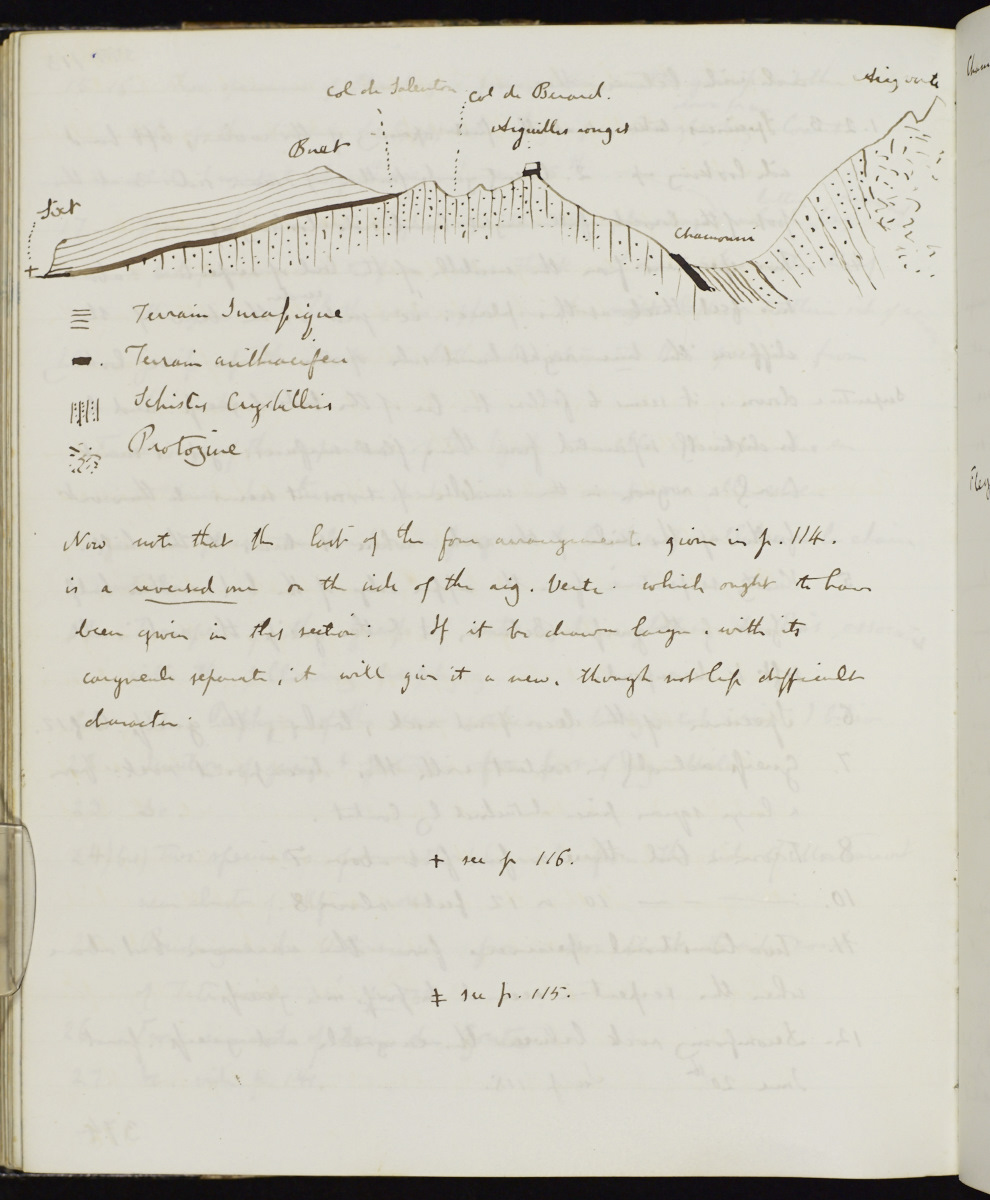 Aig verte
Col de Salenton
Col de Berard.
Aiguilles rouges
Buet
Sixt
Chamouni
Terrain Jurassique
Terrain anthracifere
Schistes Crystallins
Protogine
Now note that the last of the four arrangements given in p. 114.
is a reversed one on the side of the aig. Verte. which ought to have
been given in this section: If it be drawn large. with its
congruents separate, it will give it a new. though not less difficult
character.
+ see p 116.
‡ see p. 115.